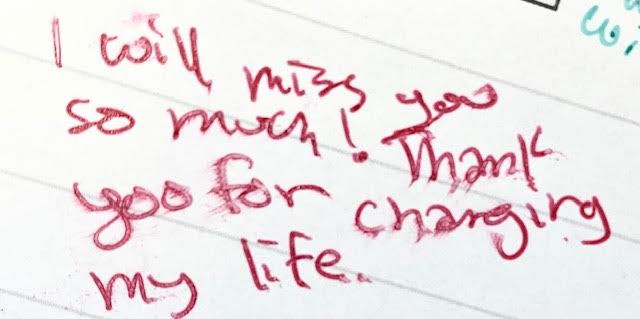 I will miss you
so much! Thank
you for changing
my life.